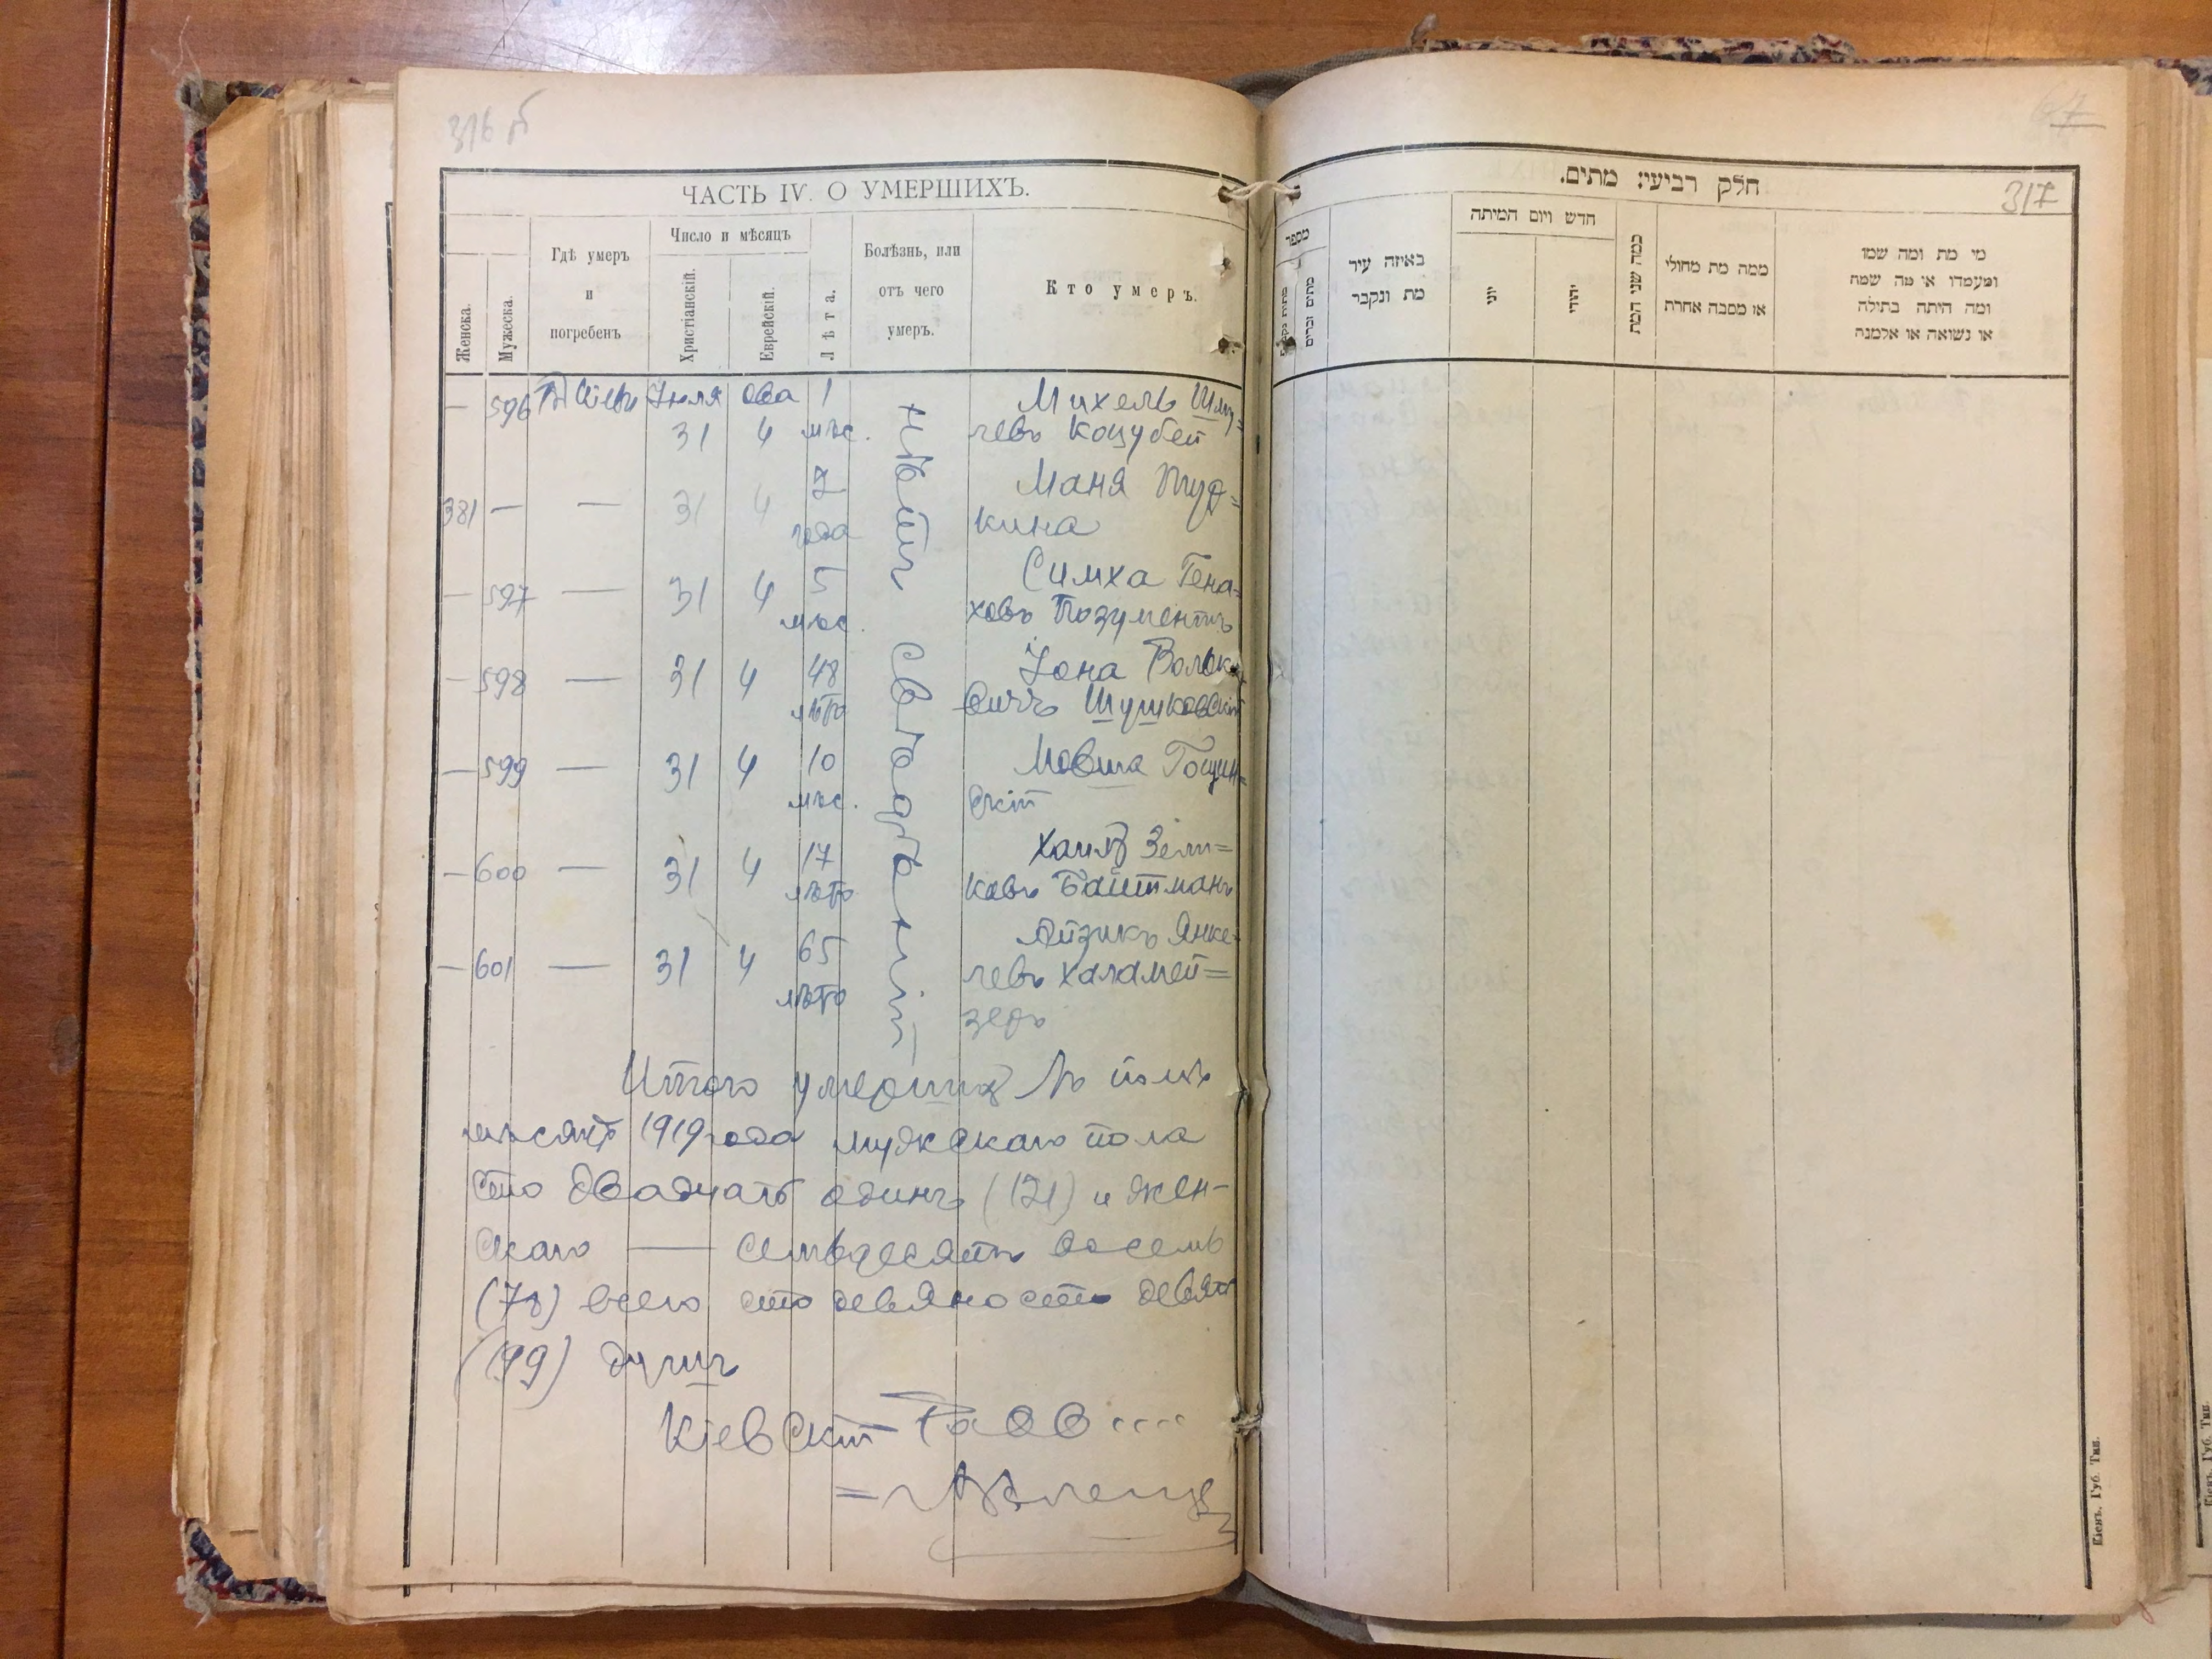 316 б
ЧАСТЬ IV. О УМЕРШИХЪ.
Женска.
Мужеска.
Гдѣ умеръ
и
погребенъ
Число и мѣсяцъ
Христіанскій.
Еврейскій.
Лѣта.
Болѣзнь, или
отъ чего
умеръ.
Кто умеръ.
— 596 Въ Кіевѣ Іюля ава 1 Михель Шму=
31 4 мѣс. левъ Коцубей
7 Маня
381 — — 31 4 года кина
— 597 — 31 4 5 Симха Гена=
мѣс. ховъ Позументъ
— 598 — 31 4 48 Іона Волько
лѣтъ вичъ Шушковскій
— 599 — 31 4 10 Мовша Гощин=
мѣс. скій
— 600 — 31 4 17 Хаимъ Зели=
лѣтъ ковъ Байтманъ
— 601 — 31 4 65 Айзикъ Янке=
лѣтъ левъ Халамей=
зеръ
нѣтъ свѣдѣній
Итого умершихъ въ іюлѣ
мѣсяцѣ 1919 года мужскаго пола
сто двадцать одинъ (121) и жен-
скаго — семьдесятъ восемь
(78) всего сто девяносто девять
(199) душъ
Кіевскій Равв....
67
חלק רביעי: מתים.
317
מספר
מתים זכרים
באיזה עיר
מת ונקבר
חדש ויום המיתה
יוני
יהודי
כמה שני המת
ממה מת מחולי
או מסבה אחרת
מי מת ומה שמו
ומעמדו או מה שמה
ומה היתה בתולה
או נשואה או אלמנה
Кіевъ. Губ. Тип.
Кіевъ. Губ. Тип.